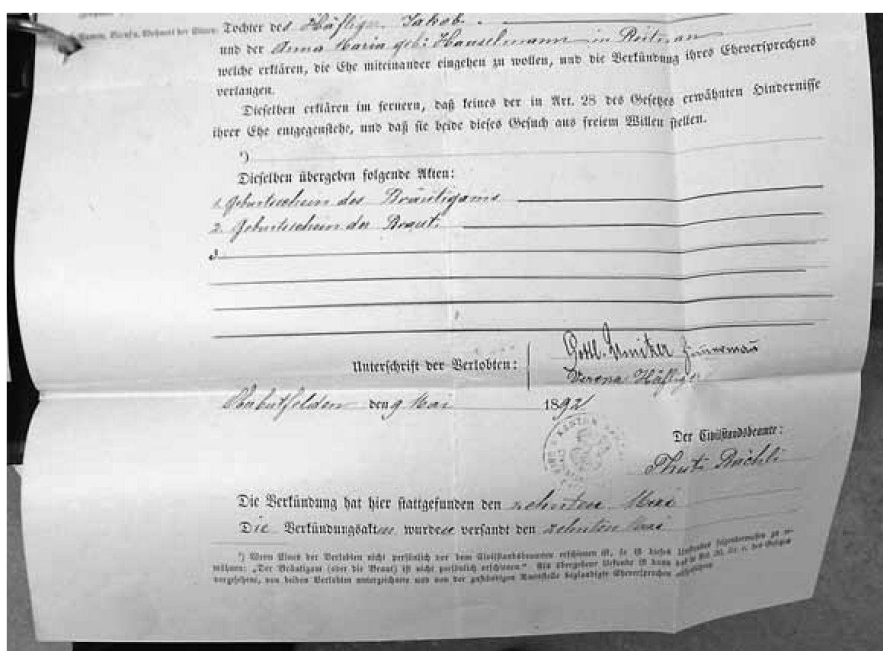 Namen, Berufs, Wohnort der Eltern: Tochter des Häfliger Jakob.
und der Anna Maria geb: Hauselmann in Reitnau
welche erklären, die Ehe miteinander eingehen zu wollen, und die Verkündung ihres Eheversprechens
verlangen.
Dieselben erklären im fernern, daß keines der in Art. 28 des Gesetzes erwähnten Hindernisse
ihrer Ehe entgegenstehe, und daß sie beide dieses Gesuch aus freiem Willen stellen.
*)
Dieselben übergeben folgende Akten:
1. Geburtsschein des Bräutigams
2. Geburtsschein der Braut.
3.
Unterschrift der Verlobten:
Gottl. Zimmermañ
Verena Häfliger
den 9 Mai 1892
Der Civilstandsbeamte:
Bächli
Die Verkündung hat hier stattgefunden den zehnten Mai
Die Verkündungsakten wurden versandt den zehnten Mai
*) Wenn Eines der Verlobten nicht persönlich vor dem Civilstandsbeamten erschienen ist, so ist dieses Umstandes folgendermaßen zu erwähnen: „Der Bräutigam (oder die Braut) ist nicht persönlich erschienen." Als übergebene Urkunde ist dann das in Art. 30, lit. c. des Gesetzes
vorgesehene, von beiden Verlobten unterzeichnete und von der zuständigen Amtsstelle beglaubigte Eheversprechen